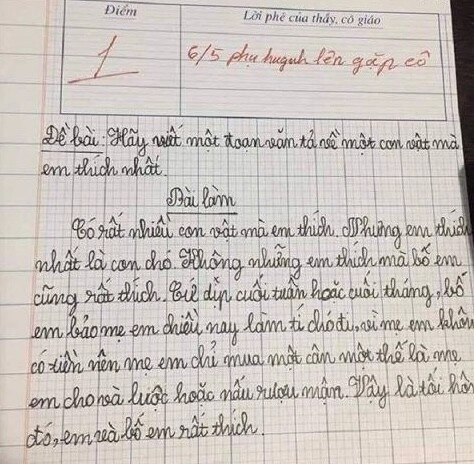 Điểm
Lời phê của thầy, cô giáo
1
6/5 phụ huynh lên gặp cô
Đề bài: Hãy viết một đoạn văn tả về một con vật mà
em thích nhất.
Bài làm
Có rất nhiều con vật mà em thích. Nhưng em thích
nhất là con chó. Không những em thích mà bố em
cũng rất thích. Cứ dịp cuối tuần hoặc cuối tháng, bố
em bảo mẹ em chiều nay làm tí chó đi, vì mẹ em không
có tiền nên mẹ em chỉ mua một cân một thế là mẹ
em cho và luộc hoặc nấu rượu mận. Vậy là tối hôm
đó, em và bố em rất thích.